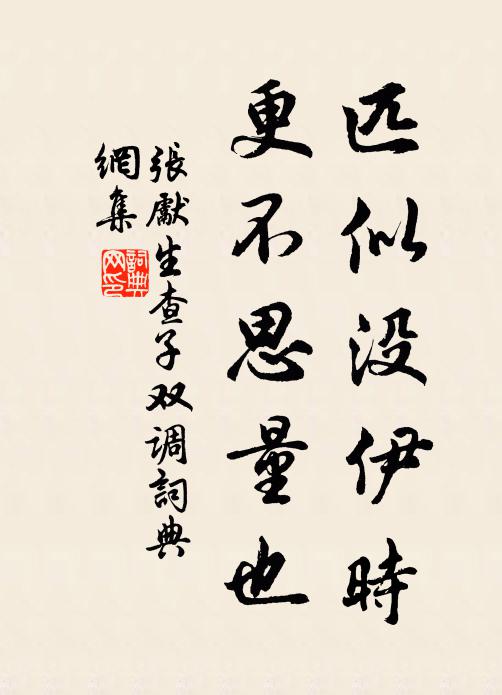 匹似没伊時
更不思量也
張獻生查子双调詞典
網集
詞典
网印